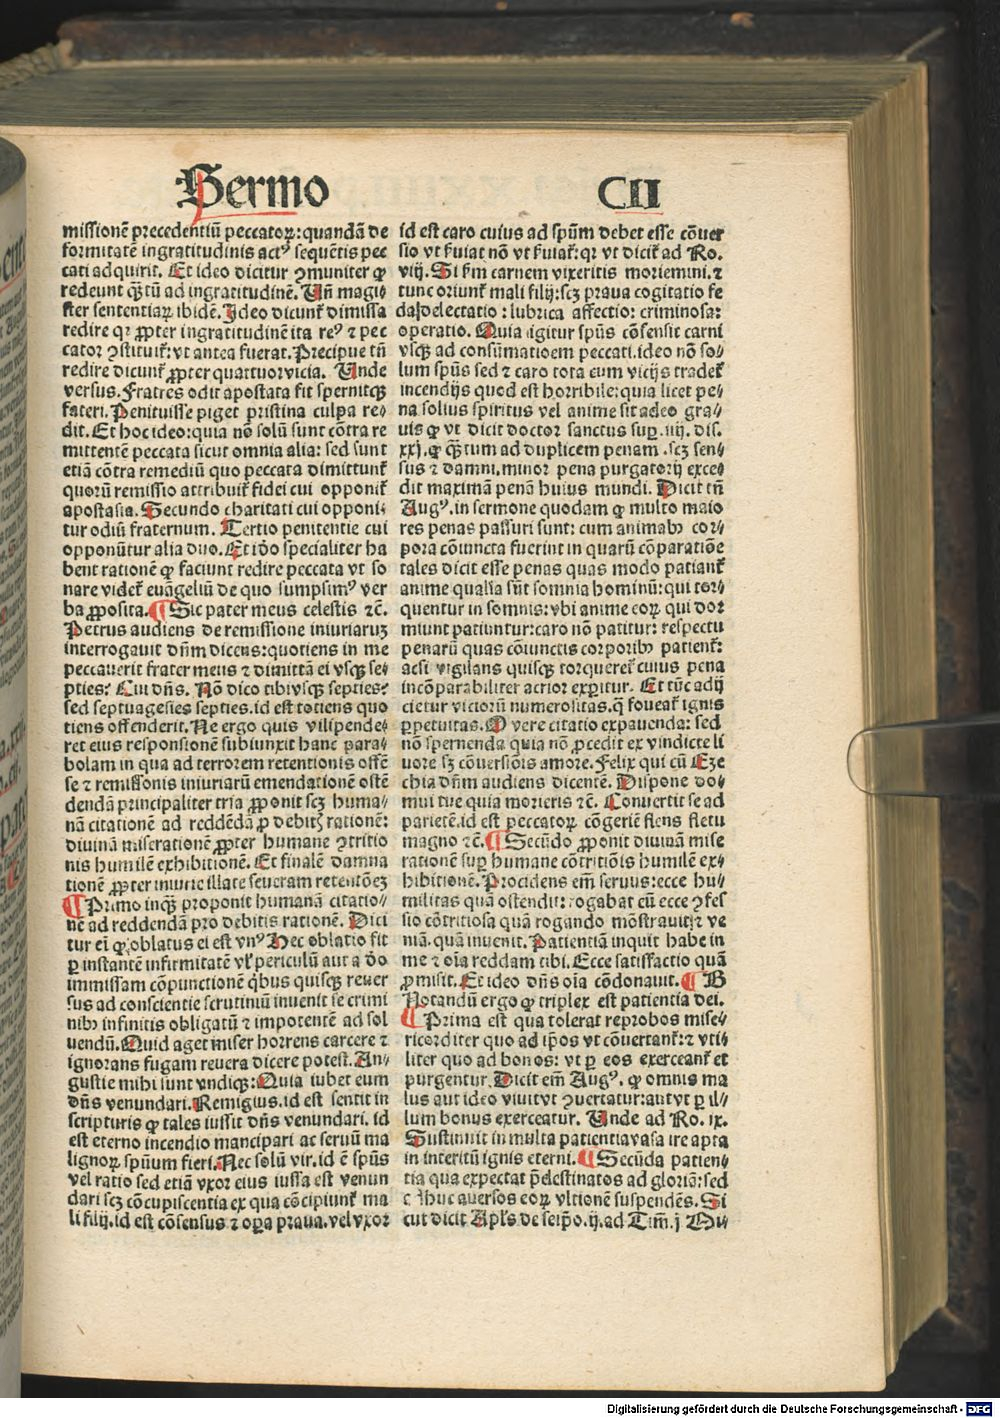 Sermo
CII
missionē precedentiū peccatoꝝ: quandā de
formitatē ingratitudinis actꝰ sequētis pec
cati adquirit. Et ideo dicitur ꝯmuniter ꝙ
redeunt qꝫ̄tū ad ingratitudinē. Uñ magi⸗
ster sententiaꝝ ibidē. Ideo dicunt̄ dimissa
redire qꝛ ꝓpter ingratitudinē ita reꝰ ⁊ pec
cator ꝯstituit̄: vt antea fuerat. Precipue tñ
redire dicunt̄ ꝓpter quattuor vicia. Unde
versus. Fratres odit apostata fit spernitqꝫ
fateri. Penituisse piget pristina culpa re⸗
dit. Et hoc ideo: quia nō solū sunt cōtra re
mittentē peccata sicut omnia alia: sed sunt
etiā cōtra remediū quo peccata dimittunt̄
quorū remissio attribuit̄ fidei cui opponit̄
apostasia. Secundo charitati cui opponi⸗
tur odiū fraternum. Tertio penitentie cui
opponūtur alia duo. Et iō specialiter ha
bent rationē ꝙ faciunt redire peccata vt so
nare videt̄ euāgeliū de quo sumpsimꝰ ver
ba ꝓposita. ¶ Sic pater meus celestis ⁊c̄.
Petrus audiens de remissione iniuriaruꝫ
interrogauit dñm dicens: quotiens in me
peccauerit frater meus ⁊ dimittā ei vsqꝫ se⸗
pties? Cui dñs. Nō dico tibi vsqꝫ septies?
sed septuagesies septies. id est totiens quo
tiens offenderit. Ne ergo quis vilipende⸗
ret eius responsionē subiunxit hanc para⸗
bolam in qua ad terrorem retentionis offē
se ⁊ remissionis iniuriarū emendationē ostē
dendā principaliter tria ꝓponit scꝫ huma⸗
nā citationē ad reddēdā ꝓ debitꝭ rationē:
diuinā miserationē ꝓpter humane ꝯtritio
nis humilē exhibitionē. Et finalē damna
tionē ꝓpter iniurie illate seueram retentōeꝫ
¶ Primo inqꝫ proponit humanā citatio⸗
nē ad reddendā pro debitis rationē. Dici
tur ei ꝙ oblatus ei est vnꝰ Hec oblatio fit
ꝑ instantē infirmitatē vl̓ periculū aut a dō
immissam cōpunctionē qͥbus quisqꝫ reuer
sus ad conscientie scrutiniū inuenit se crimi
nibꝰ infinitis obligatū ⁊ impotentē ad sol
uendū. Quid aget miser horrens carcerē ⁊
ignorans fugam reuera dicere potest. An⸗
gustie mihi sunt vndiqꝫ: Quia iubet eum
dñs venundari. Remigius. id est sentit in
scripturis ꝙ tales iussit dñs venundari. id
est eterno incendio mancipari ac seruū ma
lignoꝝ spūum fieri. Nec solū vir. id ē spūs
vel ratio sed etiā vxor eius iussa est venun
dari scꝫ cōcupiscentia ex qua cōcipiunt̄ ma
li filij. id est cōsensus ⁊ oꝑa praua. vel vxor
id est caro cuius ad spūm debet esse cōuer
sio vt ẜuiat nō vt ẜuiat̄: qꝛ vt dicit̄ ad Ro.
viij. Si ẜm carnem vixeritis moriemini. ⁊
tunc oriunt̄ mali filij: scꝫ praua cogitatio fe
da delectatio: lubrica affectio: criminosa:
operatio. Quia igitur spūs cōsensit carni
vsqꝫ ad consūmatioem peccati. ideo nō so⸗
lum spūs sed ⁊ caro tota eum vicijs tradet̄
incendijs quod est horribile: quia licet pe⸗
na solius spiritus vel anime sit adeo gra⸗
uis ꝙ vt dicit doctor sanctus suꝑ .iiij. dis.
xxj. ꝙ qꝫ̄tum ad duplicem penam .scꝫ sen⸗
sus ⁊ damni. minor pena purgatorij exce⸗
dit maximā penā huius mundi. Dicit tñ
Augꝰ. in sermone quodam ꝙ multo maio
res penas passuri sunt: cum animabꝰ cor⸗
pora cōiuncta fuerint in quarū cōparatiōe
tales dicit esse penas quas modo patiant̄
anime qualia sūt somnia hominū: qui tor⸗
quentur in somnis: vbi anime eoꝝ qui dor
miunt patiuntur: caro nō patitur: respectu
penarū quas cōiunctis corporibꝰ patient̄:
acsi vigilans quisqꝫ torqueret̄ cuius pena
incōparabiliter acrior exꝑitur. Et tūc adij
cietur viciorū numerositas. q̄ foueat̄ ignis
ꝑpetuitas. O vere citatio expauenda: sed
nō spernenda quia nō ꝓcedit ex vindicte li
uore sꝫ cōuersiōis amore. Felix qui cū Eze
chia dñm audiens dicentē. Dispone do⸗
mui tue quia morieris ⁊c̄. Conuertit se ad
parietē. id est peccatoꝝ cōgeriē flens fletu
magno ⁊c̄. ¶ Secūdo ꝓponit diuinā mise
rationē suꝑ humane cōtritiōis humilē ex⸗
hibitionē. Procidens em̄ seruus: ecce hu⸗
militas quā ostendit: rogabat cū ecce ꝯfes
sio cōtritiosa quā rogando mōstrauit: ⁊ ve
niā. quā inuenit. Patientiā inquit habe in
me ⁊ oīa reddam tibi. Ecce satisfactio quā
ꝓmisit. Et ideo dñs oīa cōdonauit. ¶ B
Notandū ergo ꝙ triplex est patientia dei.
¶ Prima est qua tolerat reprobos mise⸗
ricorditer quo ad ip̄os vt cōuertant̄: ⁊ vti⸗
liter quo ad bonos: vt ꝑ eos exerceant̄ et
purgentur. Dicit em̄ Augꝰ. ꝙ omnis ma
lus aut ideo viuit vt ꝯuertatur: aut vt ꝑ il⸗
lum bonus exerceatur. Unde ad Ro. ix.
Sustinuit in multa patientia vasa ire apta
in interitū ignis eterni. ¶ Secūda patien⸗
tia qua expectat p̄destinatos ad gloriā: sed
adhuc auersos eoꝝ vltionē suspendēs. Si
cut dicit Apl̓s de seip̄o. ij. ad Tim̄. j Qui⸗
Digitalisierung gefördert durch die Deutsche Forschungsgemeinschaft - DFG